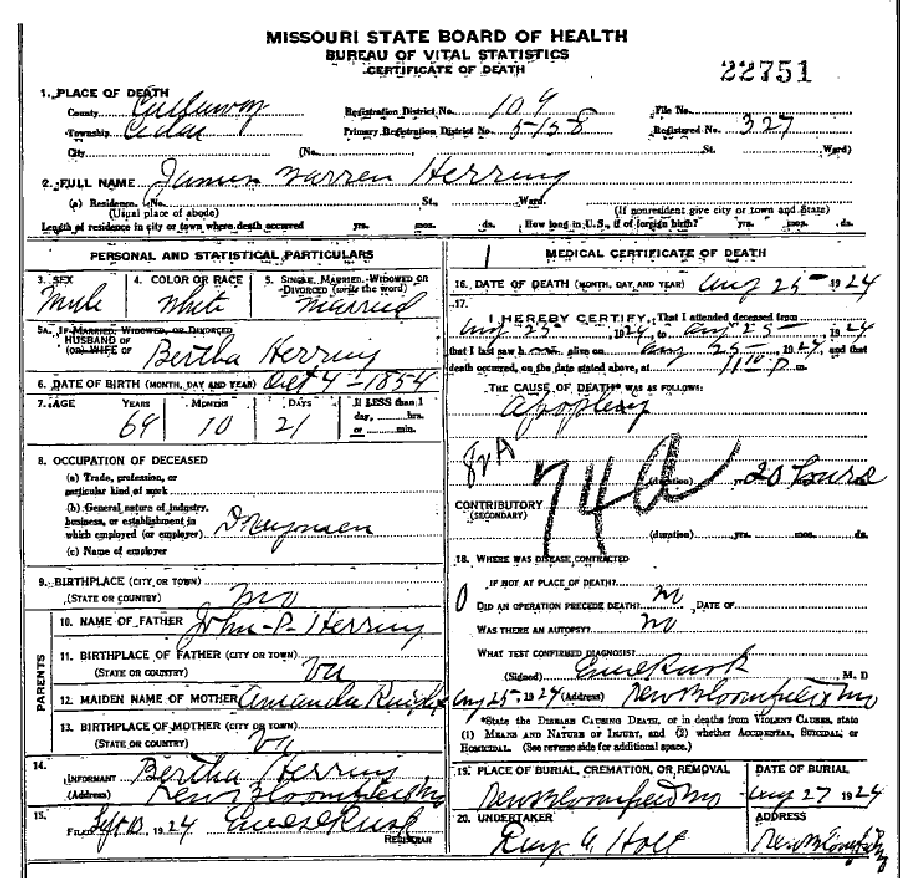 MISSOURI STATE BOARD OF HEALTH
BUREAU OF VITAL STATISTICS
CERTIFICATE OF DEATH
22751
1. PLACE OF DEATH
County Callaway Registration District No. 109 File No.
Township Cedar Primary Registration District No. 5158 Registered No. 327
City (No. St. Ward)
2. FULL NAME James Warren Herring
(a) Residence. No. St. Ward.
(Usual place of abode) (If nonresident give city or town and State)
Length of residence in city or town where death occurred yrs. mos. ds. How long in U.S., if of foreign birth? yrs. mos. ds.
PERSONAL AND STATISTICAL PARTICULARS
3. SEX 4. COLOR OR RACE 5. SINGLE, MARRIED, WIDOWED OR
DIVORCED (write the word)
Male White Married
5A. IF MARRIED, WIDOWED, OR DIVORCED
HUSBAND OF
(OR) WIFE OF Bertha Herring
6. DATE OF BIRTH (MONTH, DAY AND YEAR) Oct 4 - 1854
7. AGE YEARS MONTHS DAYS If LESS than 1
day, hrs.
or min.
69 10 21
8. OCCUPATION OF DECEASED
(a) Trade, profession, or
particular kind of work
(b) General nature of industry,
business, or establishment in
which employed (or employer)
(c) Name of employer
9. BIRTHPLACE (CITY OR TOWN)
(STATE OR COUNTRY) Mo
PARENTS
10. NAME OF FATHER John P. Herring
11. BIRTHPLACE OF FATHER (CITY OR TOWN)
(STATE OR COUNTRY) Va
12. MAIDEN NAME OF MOTHER Amanda Knight
13. BIRTHPLACE OF MOTHER (CITY OR TOWN)
(STATE OR COUNTRY) Va
14.
INFORMANT Bertha Herring
(Address) New Bloomfield Mo
15.
FILED Sept 10, 1924
REGISTRAR
1 MEDICAL CERTIFICATE OF DEATH
16. DATE OF DEATH (MONTH, DAY AND YEAR) Aug 25 - 1924
17.
I HEREBY CERTIFY, That I attended deceased from
Aug 25, 1924 to Aug 25 - 1924
that I last saw h alive on Aug 25 - 1924, and that
death occurred, on the date stated above, at 11 10 P m.
THE CAUSE OF DEATH WAS AS FOLLOWS:
Apoplexy
82A
74A
(duration) yrs. 20 hours
CONTRIBUTORY
(SECONDARY)
(duration) yrs. mos. ds.
18. WHERE WAS DISEASE CONTRACTED
IF NOT AT PLACE OF DEATH?
0 DID AN OPERATION PRECEDE DEATH? no DATE OF
WAS THERE AN AUTOPSY? no
WHAT TEST CONFIRMED DIAGNOSIS?
(Signed) M. D
Aug 25, 1924 (Address) New Bloomfield Mo
*State the DISEASE CAUSING DEATH, or in deaths from VIOLENT CAUSES, state
(1) MEANS AND NATURE OF INJURY, and (2) whether ACCIDENTAL, SUICIDAL, or
HOMICIDAL. (See reverse side for additional space.)
19. PLACE OF BURIAL, CREMATION, OR REMOVAL DATE OF BURIAL
New Bloomfield Mo Aug 27 1924
20. UNDERTAKER ADDRESS
Holt New Bloomfield